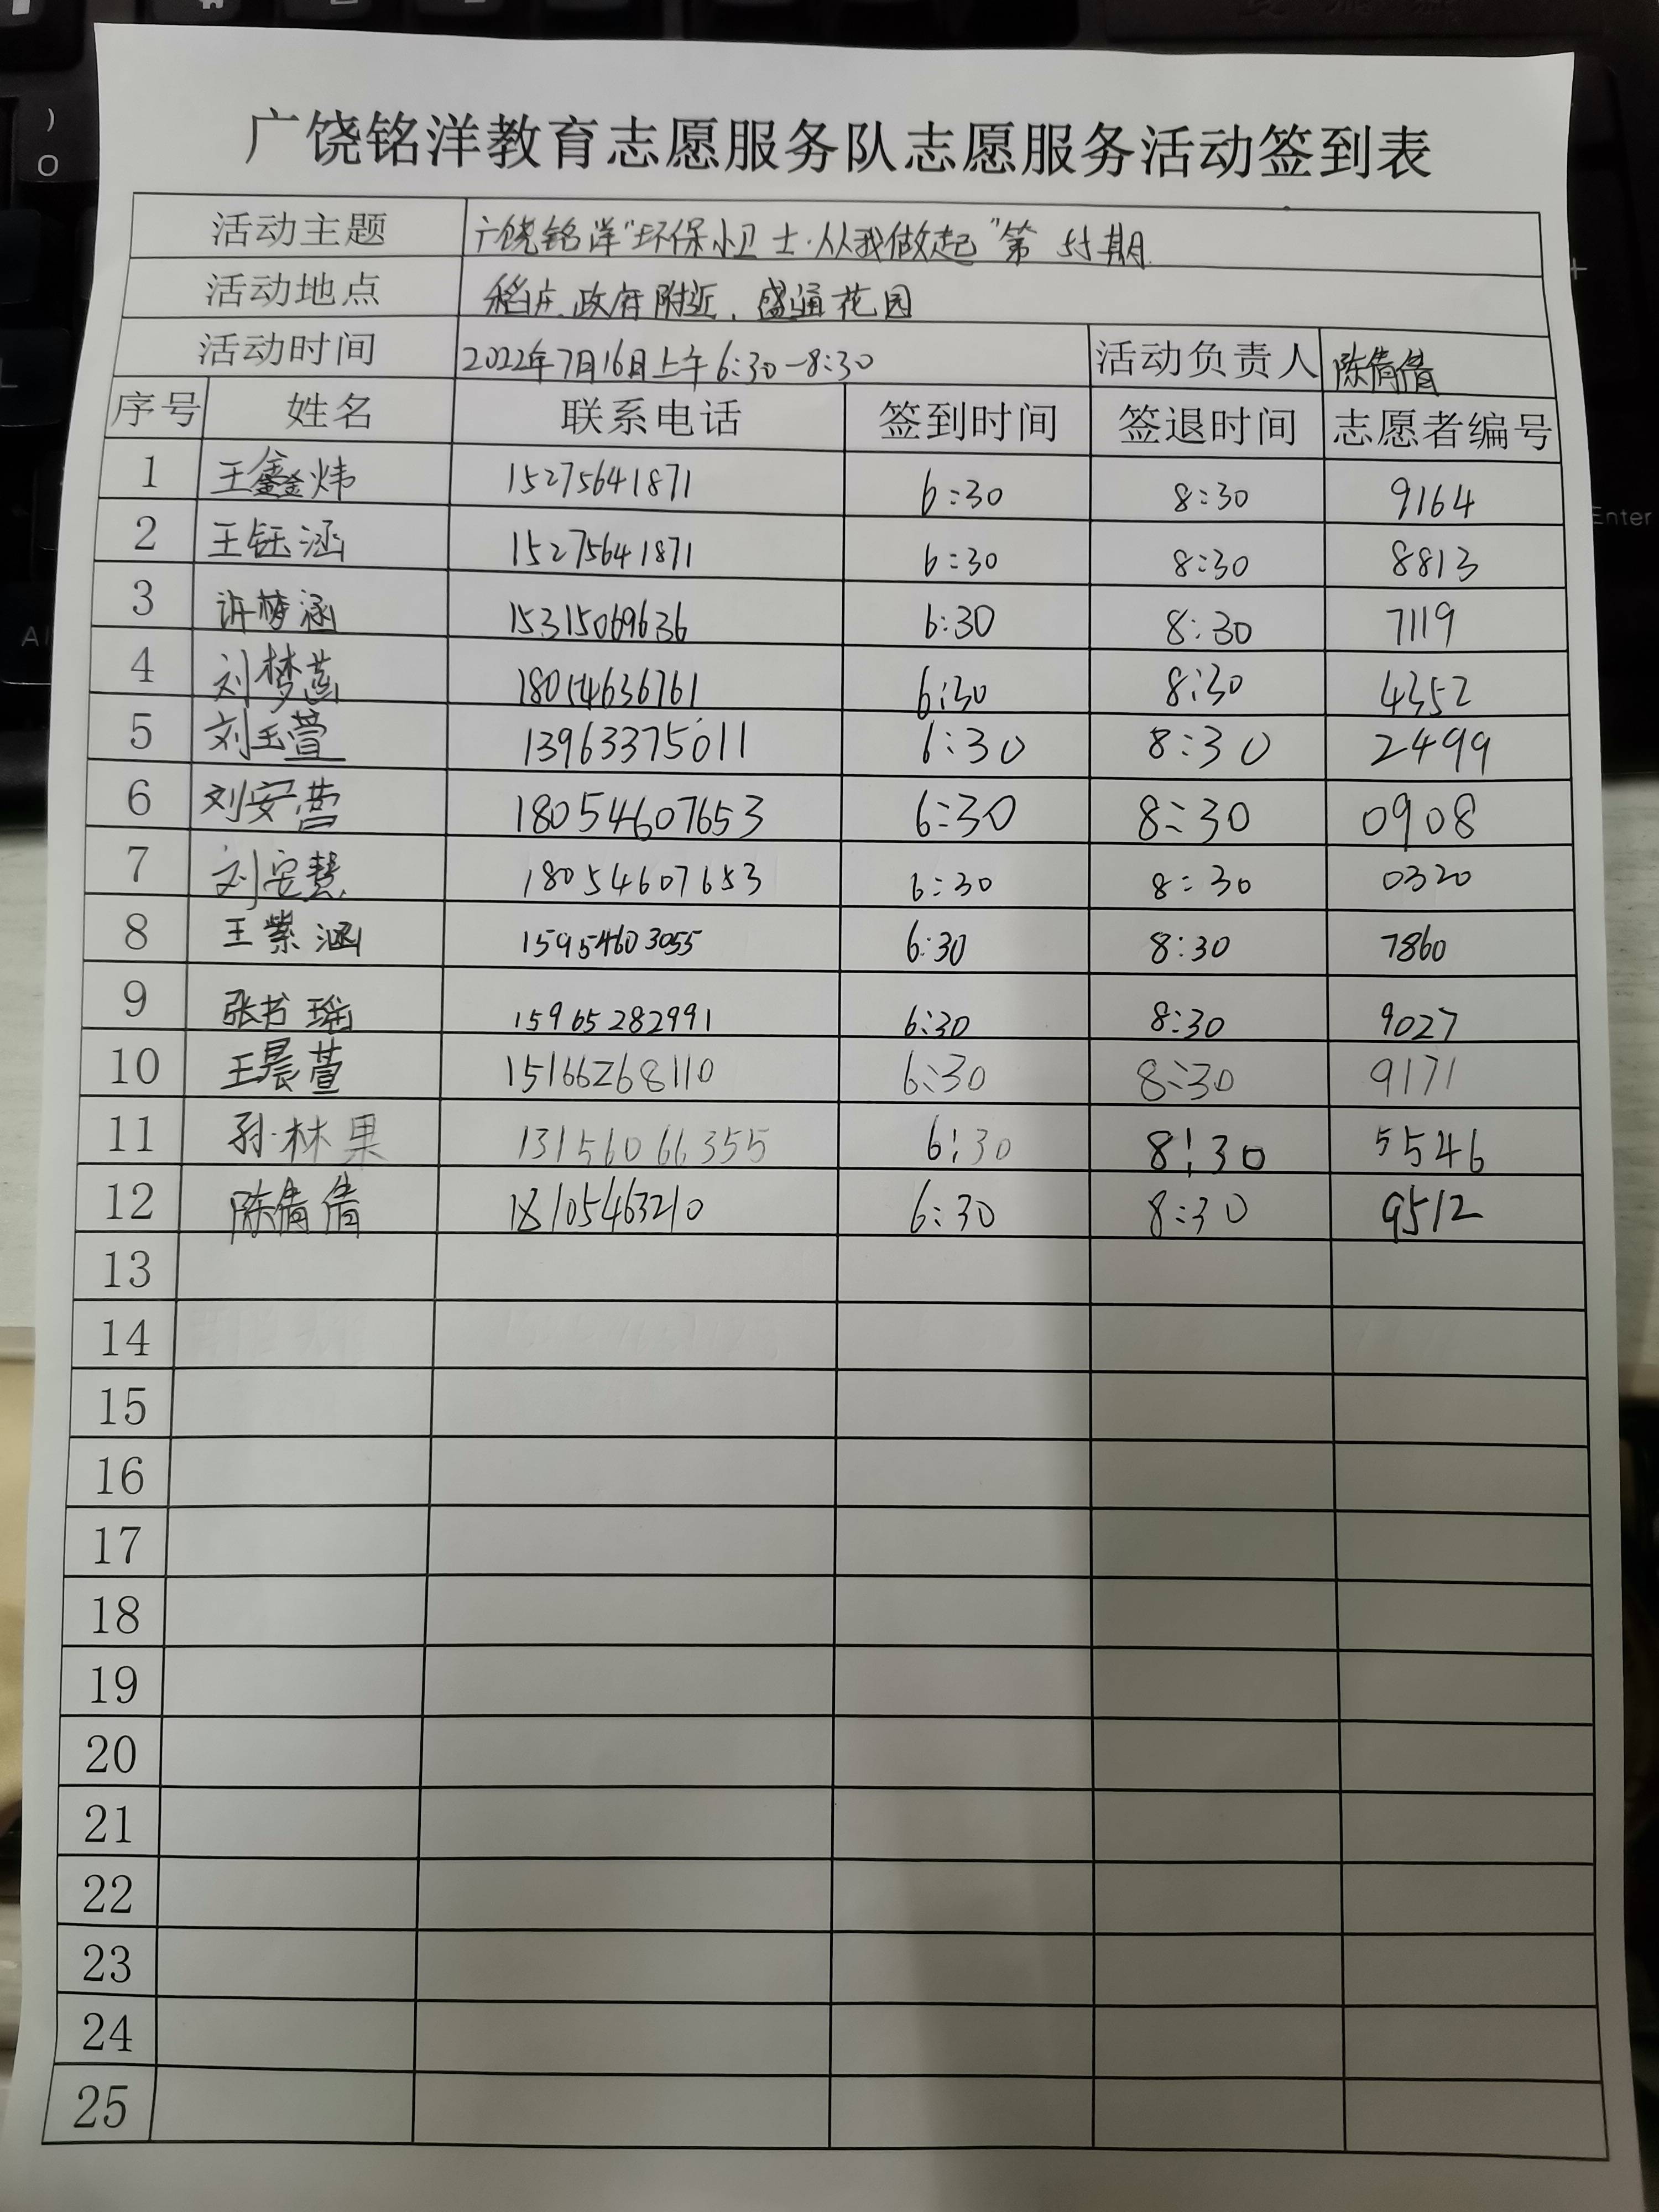 广饶铭洋教育志愿服务队志愿服务活动签到表
活动主题 广饶铭洋“环保小卫士·从我做起”第55期
活动地点 稻庄政府附近、盛通花园
活动时间 2022年7月16日上午6:30-8:30 活动负责人 陈倩倩
序号 姓名 联系电话 签到时间 签退时间 志愿者编号
1 王鑫炜 15275641871 6:30 8:30 9164
2 王钰涵 15275641871 6:30 8:30 8813
3 许梦涵 15315069636 6:30 8:30 7119
4 刘梦 18054636761 6:30 8:30 4352
5 刘玉萱 13963375011 6:30 8:30 2499
6 刘安营 18054607653 6:30 8:30 0908
7 刘安慧 18054607653 6:30 8:30 0320
8 王紫涵 15954603055 6:30 8:30 7860
9 张书瑶 15965282991 6:30 8:30 9027
10 王晨萱 15166268110 6:30 8:30 9171
11 孙林果 13156066355 6:30 8:30 5546
12 陈倩倩 18105463210 6:30 8:30 9512
13
14
15
16
17
18
19
20
21
22
23
24
25
Enter